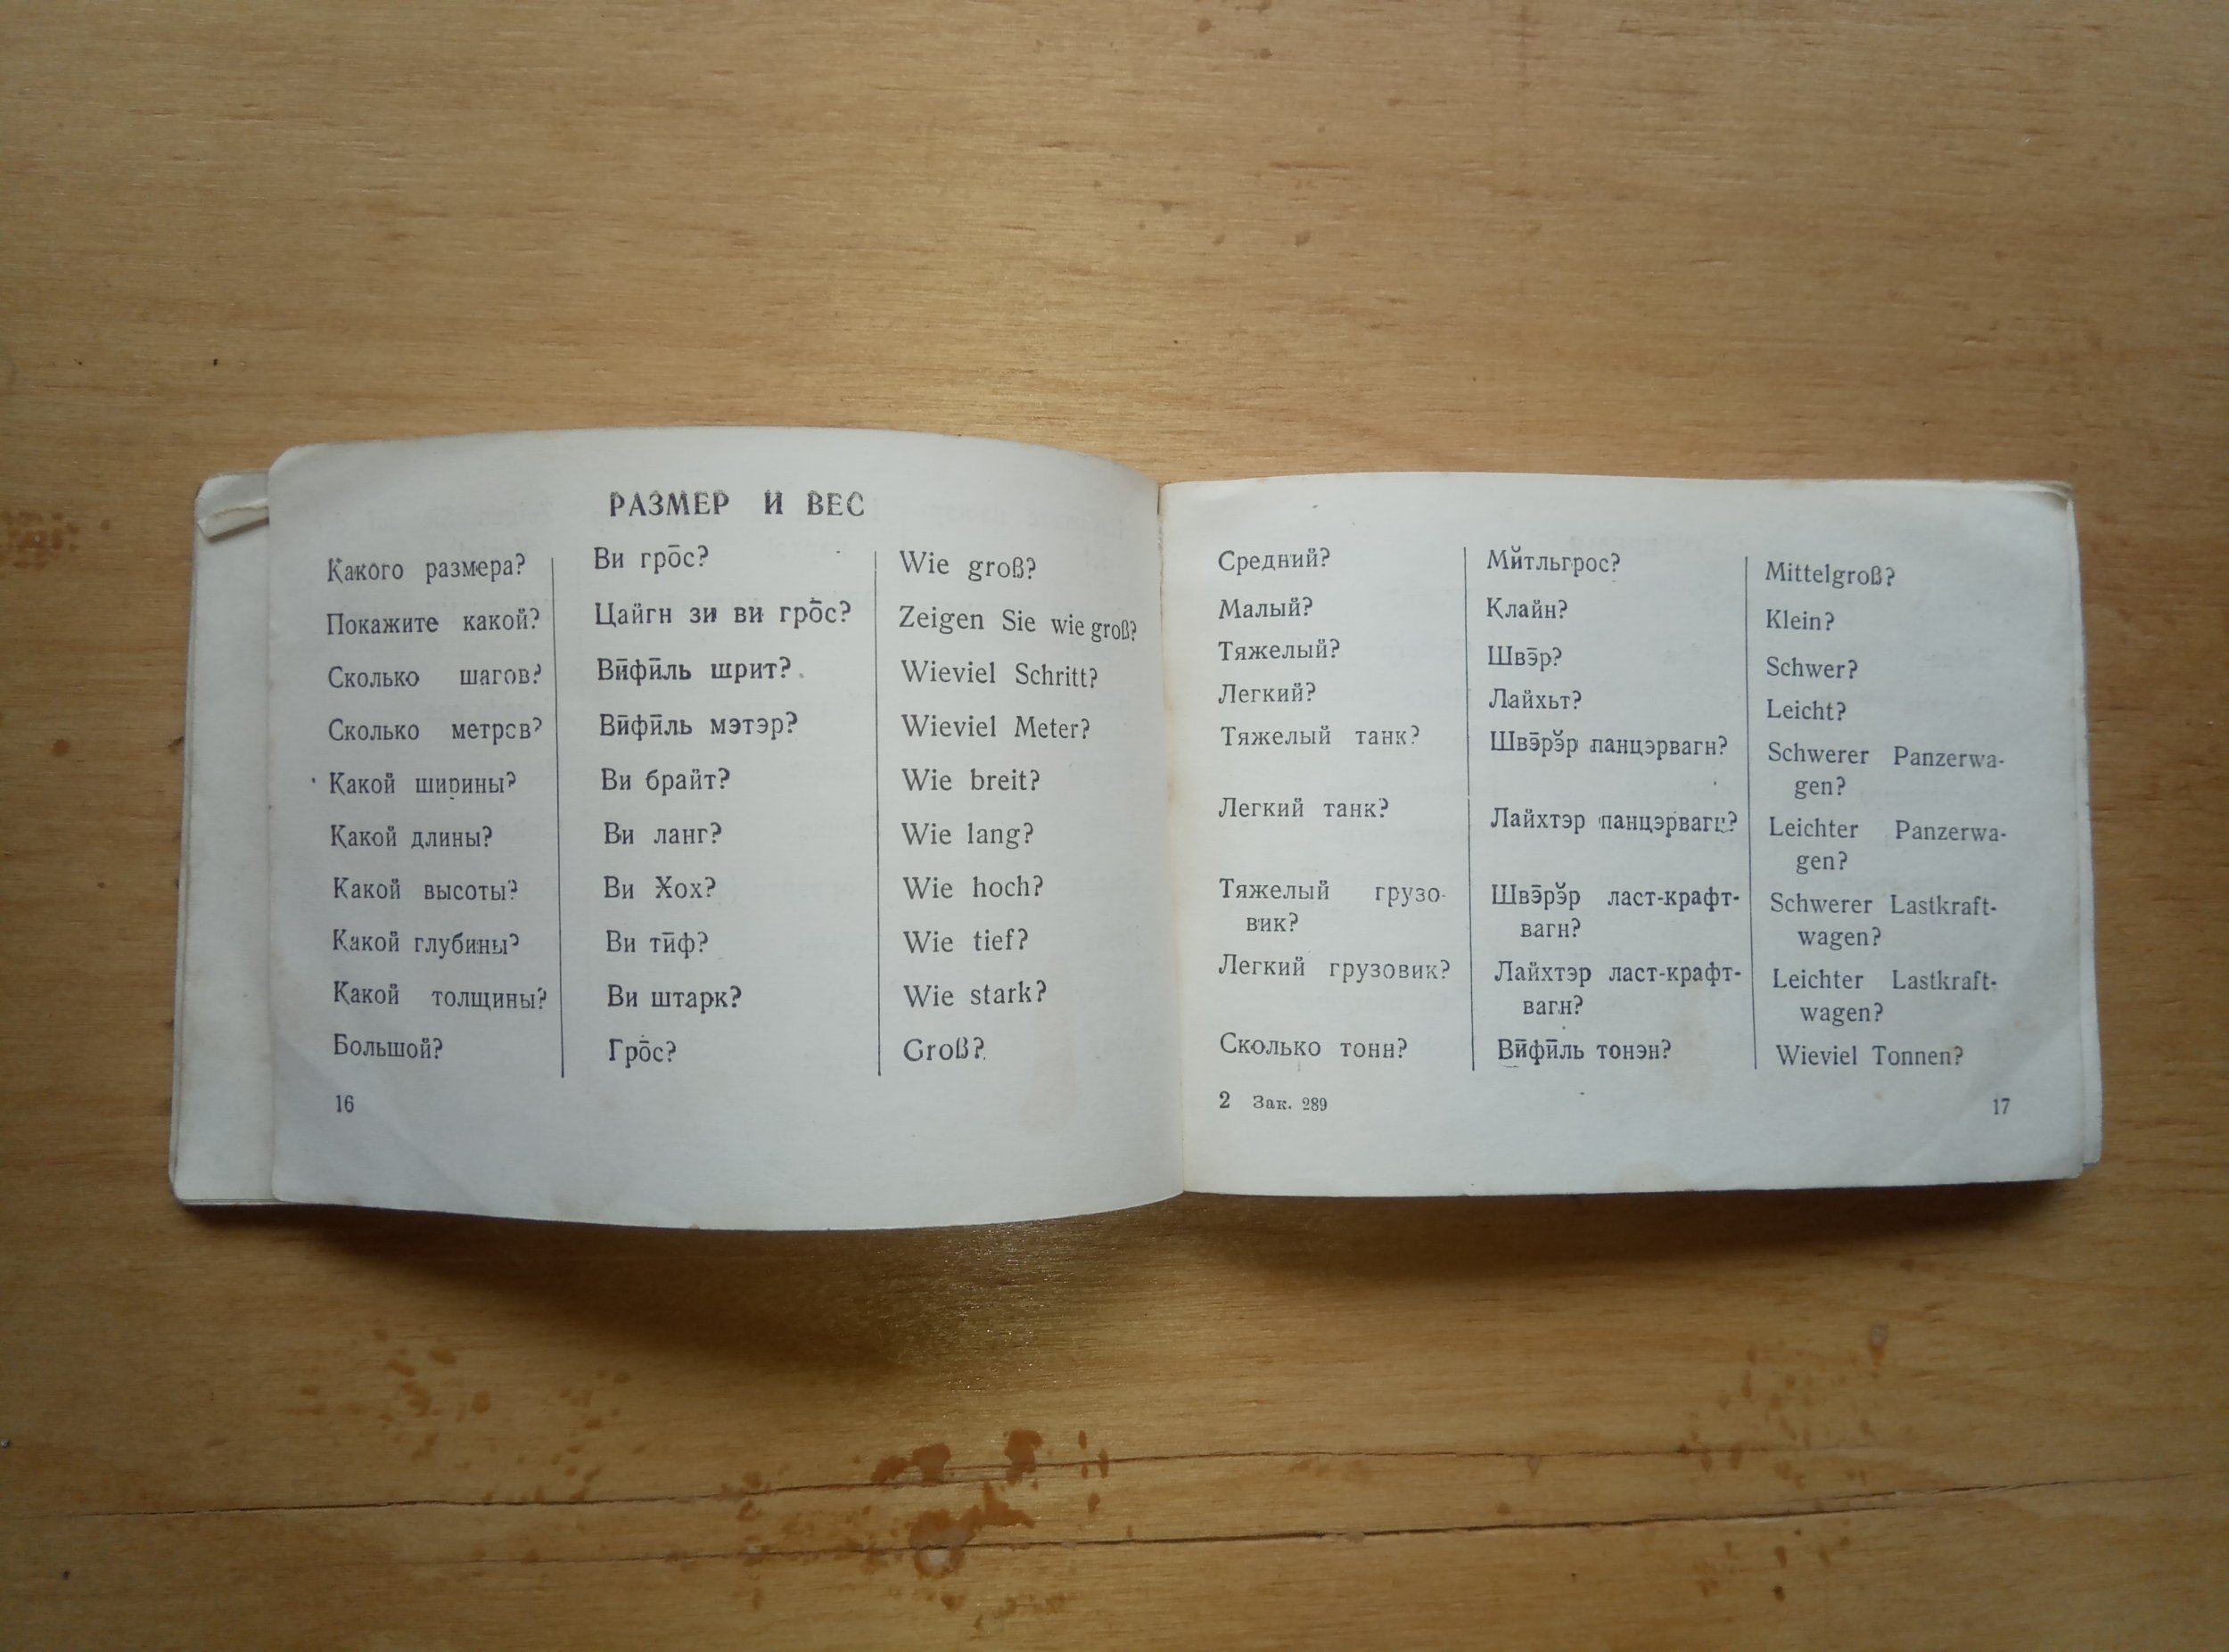 РАЗМЕР И ВЕС
Какого размера? Ви гро̄с? Wie groß?
Покажите какой? Цайгн зи ви гро̄с? Zeigen Sie wie groß?
Сколько шагов? Вӣфӣль шрит? Wieviel Schritt?
Сколько метров? Вӣфӣль мэтэр? Wieviel Meter?
Какой ширины? Ви брайт? Wie breit?
Какой длины? Ви ланг? Wie lang?
Какой высоты? Ви Х̆ох? Wie hoch?
Какой глубины? Ви тӣф? Wie tief?
Какой толщины? Ви штарк? Wie stark?
Большой? Гро̄с? Groß?
16
Средний? Мӣтльгрос? Mittelgroß?
Малый? Клайн? Klein?
Тяжелый? Швэ̄р? Schwer?
Легкий? Лайхьт? Leicht?
Тяжелый танк? Швэ̄рэ̆р панцэрвагн? Schwerer Panzerwa-
gen?
Легкий танк? Лайхтэр панцэрвагн? Leichter Panzerwa-
gen?
Тяжелый грузо- Швэ̄рэ̆р ласт-крафт- Schwerer Lastkraft-
вик? вагн? wagen?
Легкий грузовик? Лайхтэр ласт-крафт- Leichter Lastkraft-
вагн? wagen?
Сколько тонн? Вӣфӣль тонэн? Wieviel Tonnen?
2 Зак. 289 17